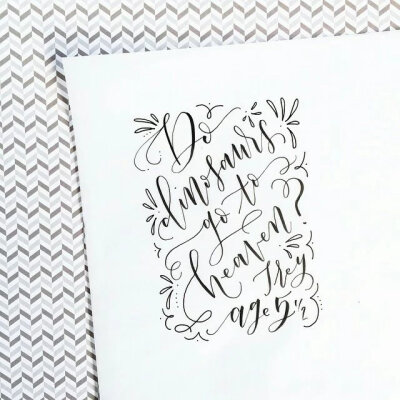 Do
dinosaurs
go to
heaven?
Trey
age 5 1/2